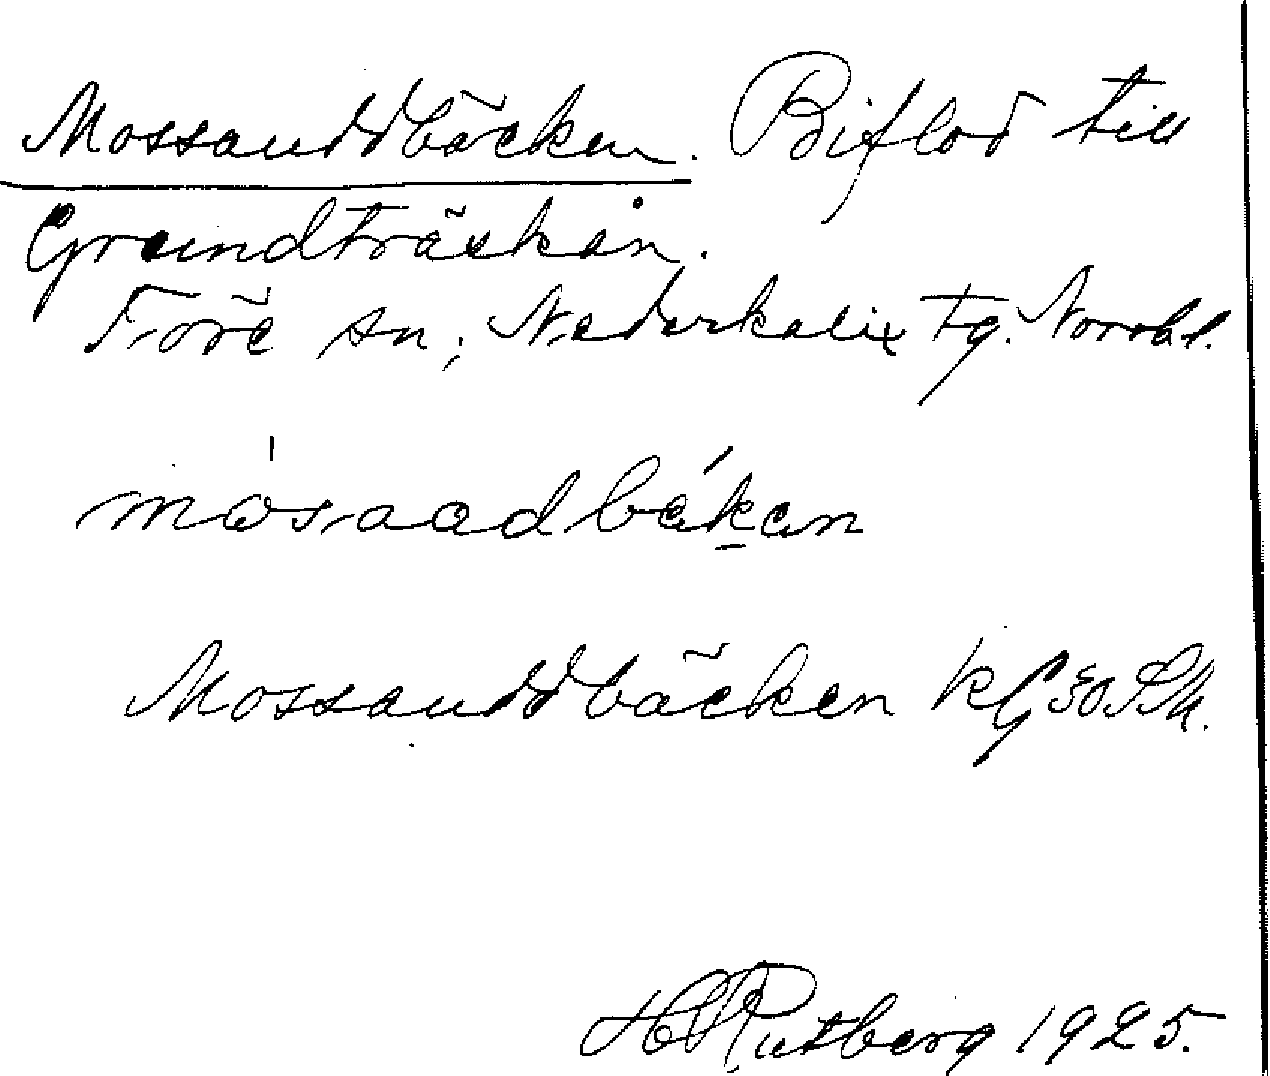 Mossauddbäcken. Biflod till
Grundträskån.
Töre sn; Nederkalix tg. Norrbl.
mosaadbäkan
Mossauddbäcken
H Rutberg 1925.